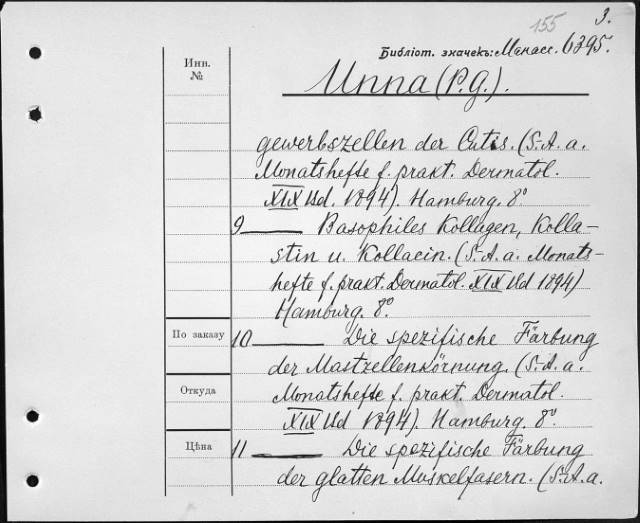 155
3.
Библіот. значекъ: Манасс. 6395.
Инв.
№
Unna (P.G.).
gewerbszellen der Cutis. (S.A. a.
Monatshefte f. prakt. Dermatol.
XIX Bd. 1894). Hamburg. 8°
9 Basophiles Kollagen, Kolla-
stin u. Kollacin. (S.A. a. Monats-
hefte f. prakt. Dermatol. XIX Bd 1894)
Hamburg. 8°
По заказу
10 Die spezifische Färbung
der Mastzellenkörnung. (S.A. a.
Откуда
Monatshefte f. prakt. Dermatol.
XIX Bd 1894). Hamburg. 8°
Цѣна
11 Die spezifische Färbung
der glatten Muskelfasern. (S.A. a.